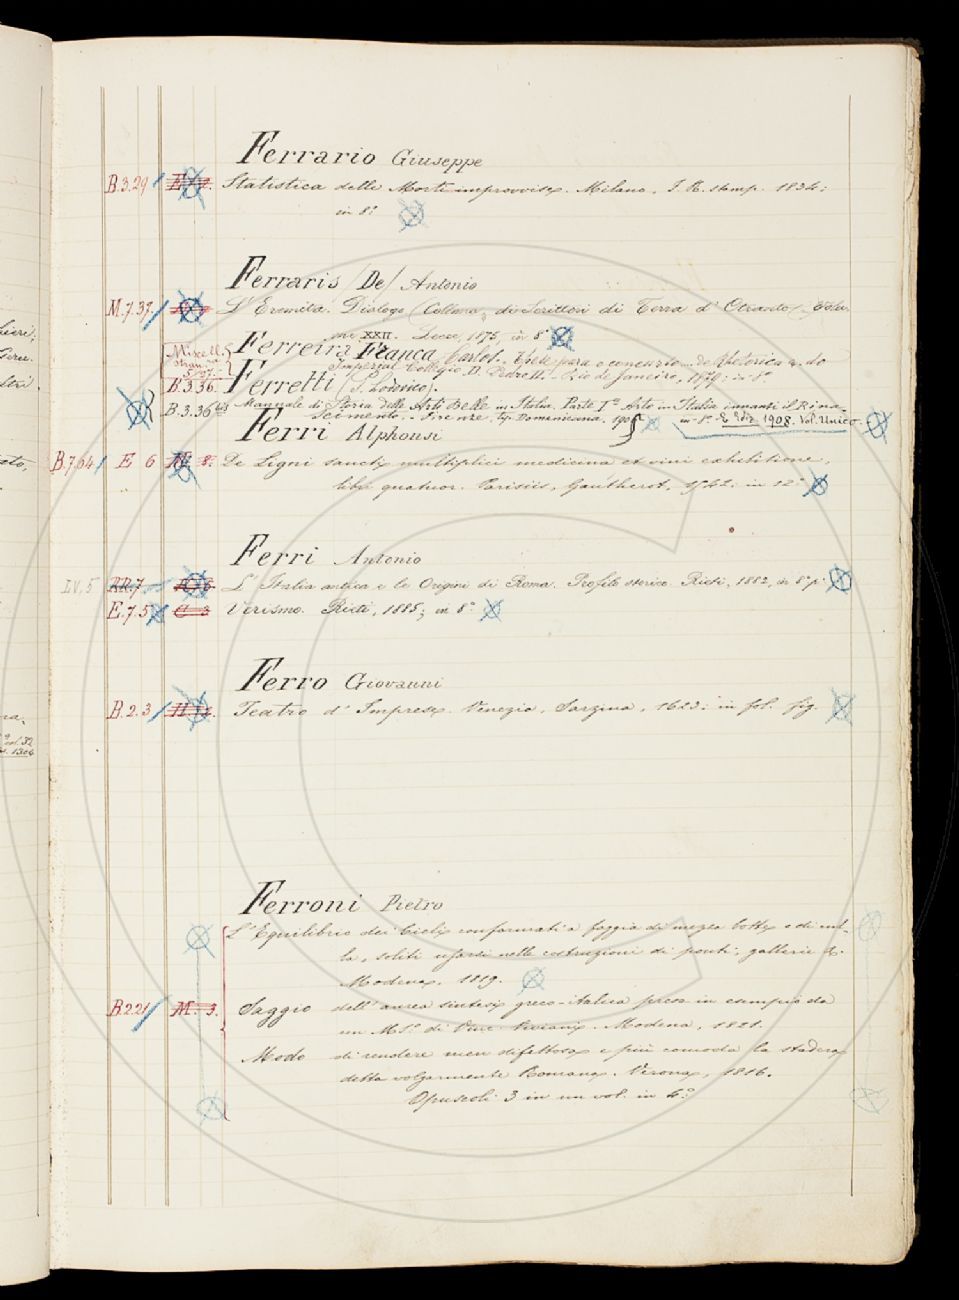 Ferrario Giuseppe
B.3.29 Statistica delle Morti improvvise. Milano, I. R. stamp. 1834;
in 8°
Ferraris (De) Antonio
M.7.37. L'Eremita. Dialogo (Collana di Scrittori di Terra d'Otranto, Volu-
me XXII. Lecce, 1875, in 8°
Ferreira França Carlos.
Imperial Collegio D. Pedro II. Rio de Janeiro, in 8°.
Miscell.
Stran.
B.3.36 Ferretti (P. Lodovico).
B.3.36 bis Manuale di Storia delle Arti Belle in Italia. Parte Iª Arte in Italia innanzi il Rina-
scimento. Firenze. Tip. Domenicana. in 8°. 1908. Vol. Unico.
Ferri Alphonsi
B.7.64 E 6 De Ligni sancti multiplici medicina et vini exhibitione,
libri quatuor. Parisiis, Gaútherot, 1542; in 12°
Ferri Antonio
I.V.5 RR.7 L'Italia antica e le Origini di Roma. Profilo storico. Rieti, 1882, in 8° p.
E.7.5 C 3 Verismo. Rieti, 1885; in 8°
Ferro Giovanni
B.2.3 Teatro d'Imprese. Venezia, Sarzina, 1623; in fol. fig.
Ferroni Pietro
L'Equilibrio dei Cieli conformati a foggia di mezza botte e di vol-
ta, soliti usarsi nelle costruzioni di ponti, gallerie &.
Modena, 1819.
B.2.21 M. 3. Saggio dell'aurea sintesi greco-italica presa in esempio da
un MS.° di Vinc. Viviani. Modena, 1821.
Modo di rendere men difettosa e più comoda la stadera
detta volgarmente Romana. Verona, 1816.
Opuscoli 3 in un vol. in 4°